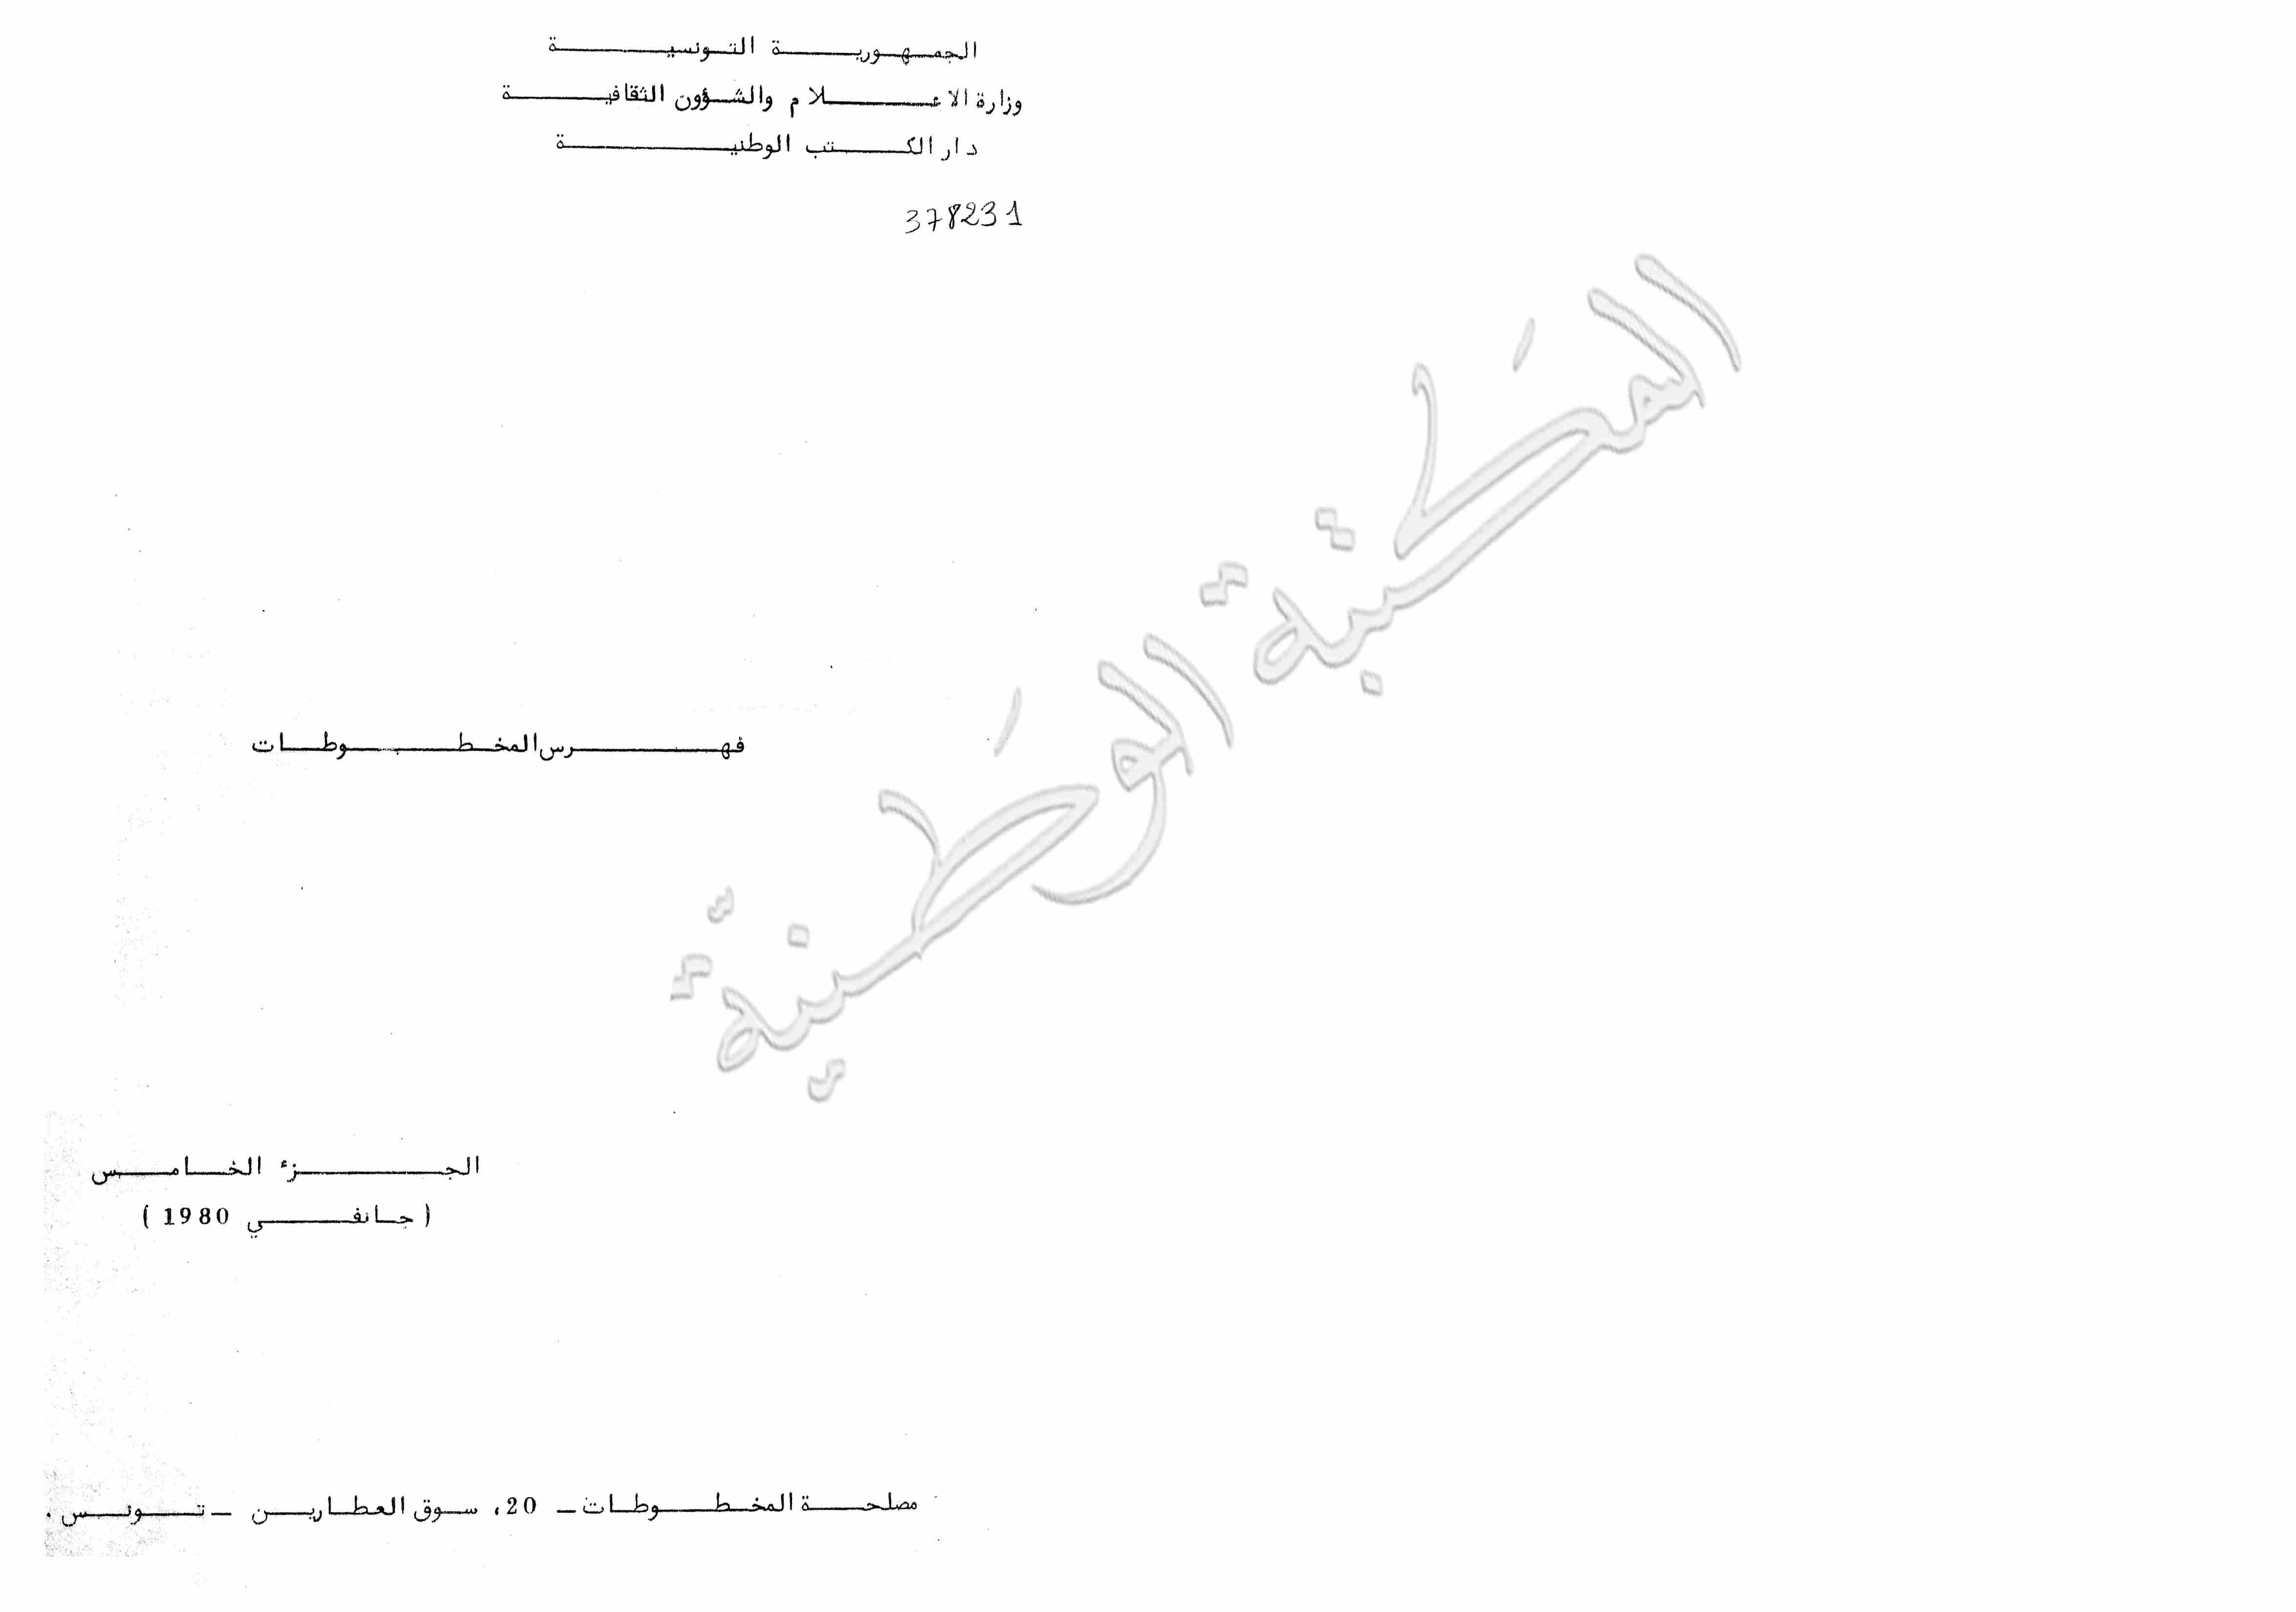 الجمهورية التونسية
وزارة الاعلام والشؤون الثقافية
دار الكتب الوطنية
378231
المكتبة الوطنية
فهرس المخطوطات
الجزء الخامس
( جانفي 1980 )
مصلحة المخطوطات _ 20، سوق العطارين _ تونس .